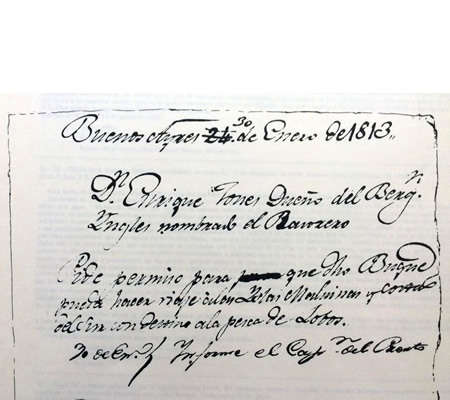 Buenos Ayres 30 de Enero de 1813,,
Dn. Enrique Jones Dueño del Bergn.
Yngles nombrado el
Pide permiso para que dho Buque
pueda hacer viaje á las Yslas Malvinas y costas
del Sur con destino a la pesca de Lobos.
30 de En.o Ynforme el Capn. del Puerto